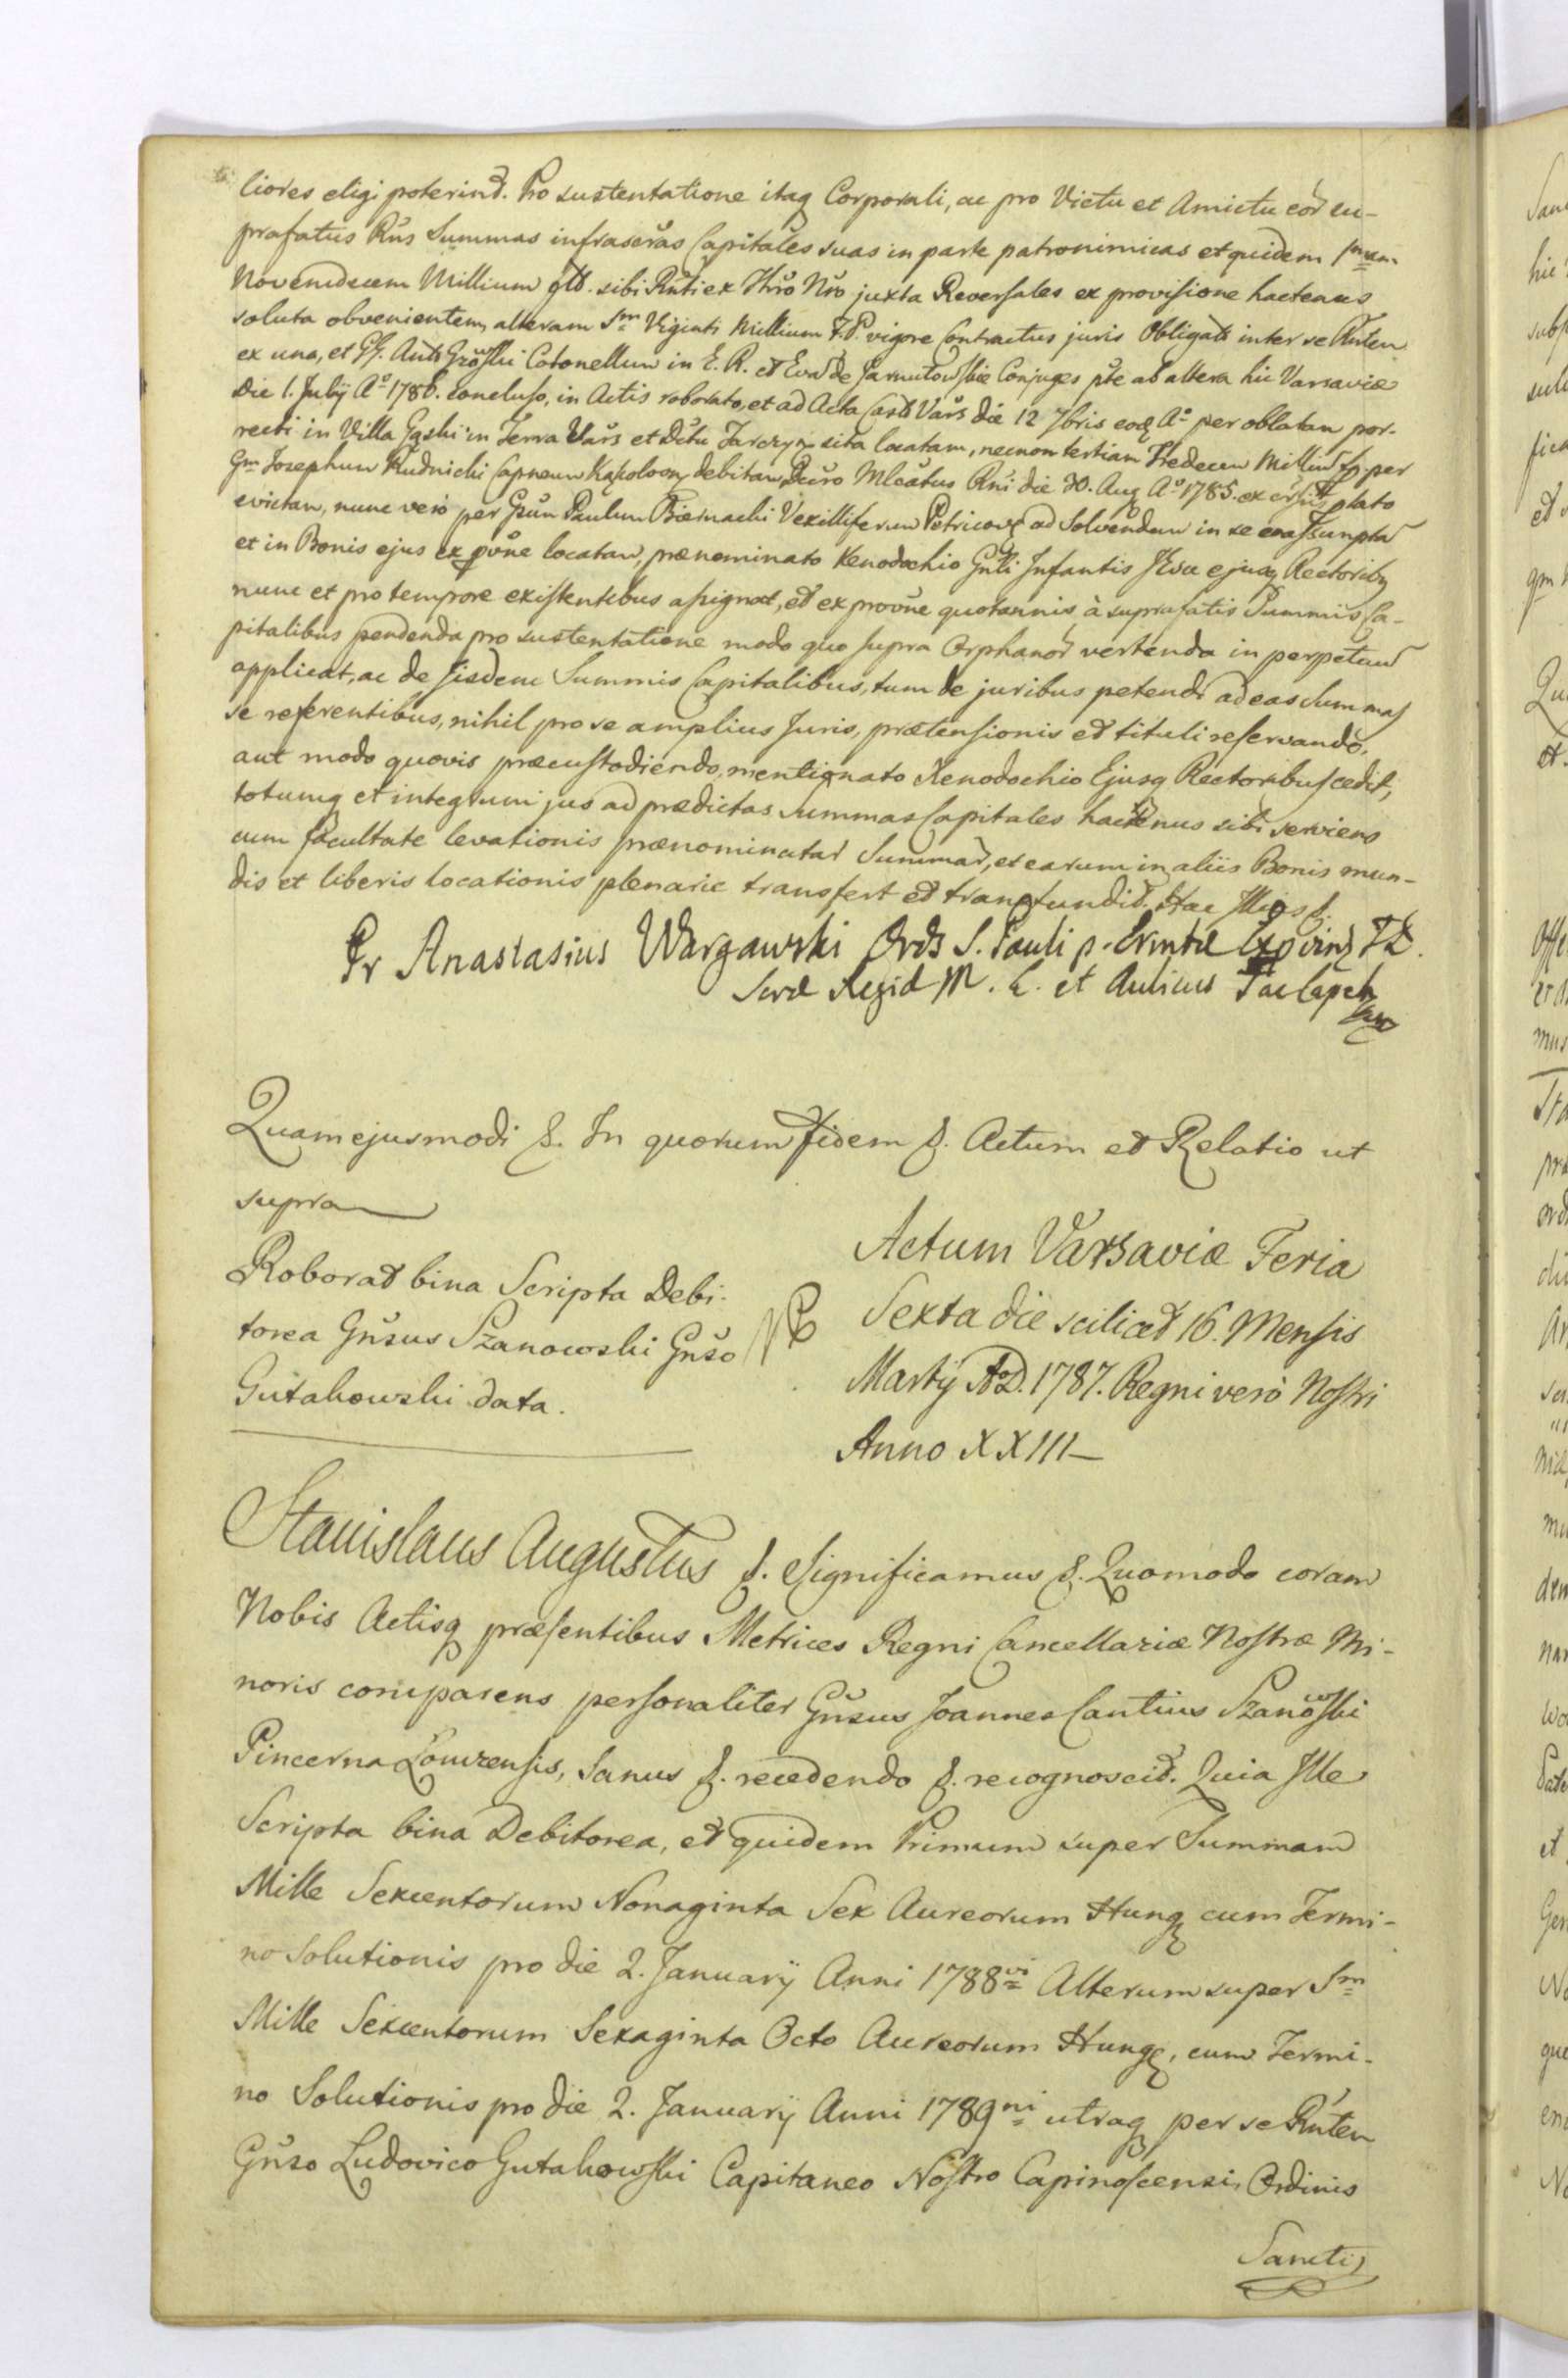 liores eligi poterind. Pro sustentatione itaq Corporali, ac pro Victu et Amictu eor eu-
præfatus Rus Summas infrascras Capitales suas in parte patronimicas et quidem Smam
Novemdecem Millium gtd. sibi Rnti ex Thro Nro juxta Reversales ex provisione hactenus
soluta obvenientem, alteram Sm Viginti Millium F. P. vigore Contractus juris Obligati inter se Rnten
ex una, et Gf. Ant Growski Colonellum in E. R. et Eva de Jarnutowskie Conjuges pte ab altera hic Varsaviæ
Die 1. July Ao 1786. concluso, in Actis roborato, et ad Acta Cast Vars die 12 7bris eod Ao per oblatam por-
recti in Villa Gąski in Terra Vars et Dctu Tarczyn sita locatam, necnon tertiam Tredecem Millium fp. per
Gm Josephum Rudnicki Capneum Kąkolovn debitam, Decro Mlcatus Rni die 30. Aug Ao 1785. ex plato
evictam, nunc vero per Gsum Paulum Biernacki Vexilliferum Petricovs ad Solvendum in se
et in Bonis ejus ex pvne locatam, prænominato Xenodochio Gnli Infantis Jesu ejusq Rectoribq
nunc et pro tempore existentibus assignat, et ex provne quotannis à suprafatis Summis Ca-
pitalibus pendenda pro sustentatione modo quo supra Orphanor vertenda in perpetuum
applicat, ac de iisdem Summis Capitalibus, tum de juribus petendi ad eas Summas
se referentibus, nihil pro se amplius Juris, prætensionis et tituli reservando,
aut modo quovis præcustodiendo, mentionato Xenodochio Ejusq Rectoribus cedit,
totumq et integrum jus ad prædictas Summas Capitales hactenus sibi serviens
cum facultate levationis prænominatar Summar, et earum in aliis Bonis mun-
dis et liberis locationis plenarie transfert et transfundit. Hac
Fr Anastasius Wargawski Ords S. Pauli p. Ermtæ Expvinc
Secrd Regid M. C. et Aulicus
Quam ejusmodi &. In quorum fidem &. Actum et Relatio ut
supra
Roborat bina Scripta Debi-
torea Gnsus Szanowski Gnso
Gutakowski data.
Actum Varsaviæ Feria
Sexta die scilicet 16. Mensis
Martÿ A D. 1787. Regni verò Nostri
Anno XXIII
Stanislaus Augustus &. Significamus &. Quomodo coram
Nobis Actisq præsentibus Metrices Regni Cancellariæ Nostræ Mi-
noris comparens personaliter Gnsus Joannes Cantius Szanowski
Pincerna Łomzensis, Sanus &. recedendo &. recognoscit. Quia Ille
Scripta bina Debitorea, et quidem Primum super Summam
Mille Sexcentorum Nonaginta Sex Aureorum Hung cum Termi-
no Solutionis pro die 2. Januarÿ Anni 1788vi Alterum super Sm
Mille Sexcentorum Sexaginta Octo Aureorum Hung, cum Termi-
no Solutionis pro die 2. Januarÿ Anni 1789ni utraq per se Rnten
Gnso Ludovico Gutakowski Capitaneo Nostro Capinoscensi, Ordinis
Sancti